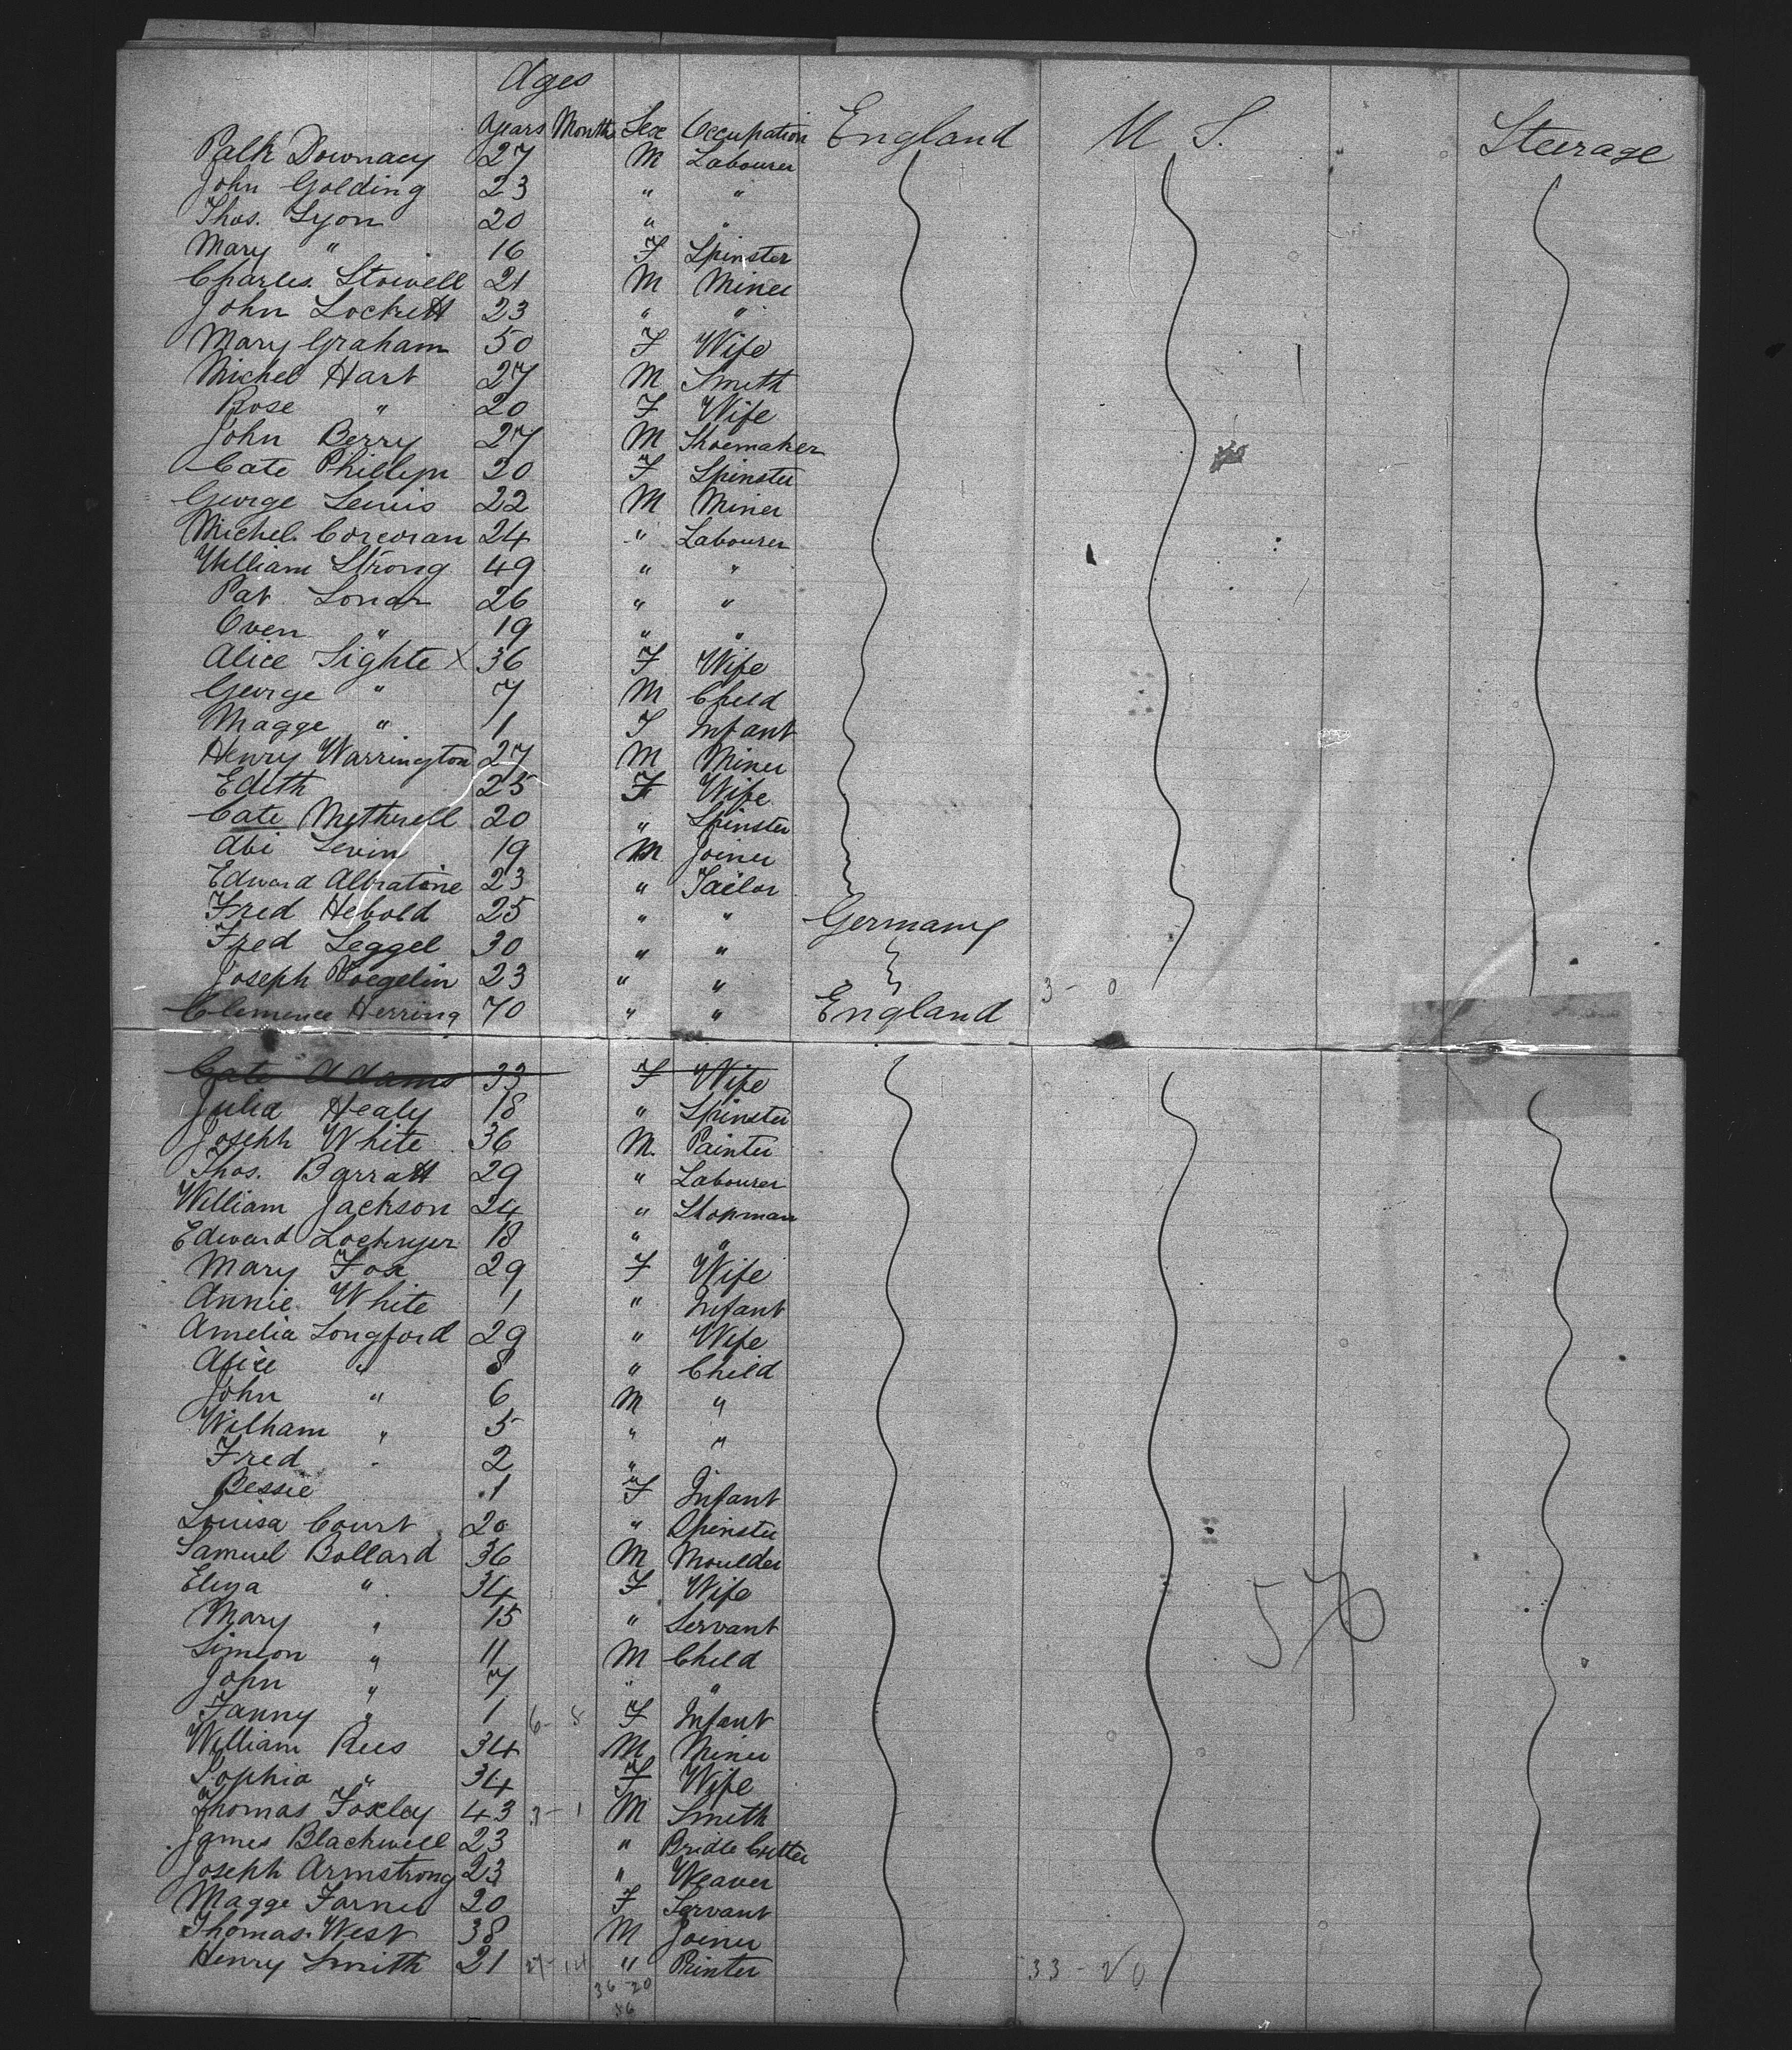 Ages
Years Months Sex Occupation England U S. Steerage
Patk Downacy 27 M Labourer
John Golding 23 " "
Thos. Lyon 20 " "
Mary " 16 F Spinster
Charles Stowell 21 M Miner
John Lockett 23 " "
Mary Graham 50 F Wife
Michel Hart 27 M Smith
Rose " 20 F Wife
John Berry 27 M Shoemaker
Cate Phillips 20 F Spinster
George Lewis 22 M Miner
Michel Corcoran 24 " Labourer
William Strong 49 " "
Pat. 26 " "
Owen " 19 " "
Alice Lighte X 36 F Wife
George " 7 M Child
Magge " 1 F Infant
Henry Warrington 27 M Miner
Edith 25 F Wife
Cate Metherell 20 " Spinster
Abi Levin 19 M Joiner
Edward Albratine 23 " Tailor
Fred Hebold 25 " " Germany
Fred Leggel 30 " "
Joseph Voegelin 23 " " 3 - 0
Clemence Herring 70 " " England
Cate Adams 33 F Wife
Julia Healy 18 " Spinster
Joseph White 36 M. Painter
Thos. Barratt 29 " Labourer
William Jackson 24 " Shopman
Edward Lockyer 18 " "
Mary Fox 29 F Wife
Annie White 1 " Infant
Amelia Longford 29 " Wife
Alice " 8 " Child
John " 6 M "
William " 5 " "
Fred 2 "
Bessie 1 F Infant
Louisa Court 20 " Spinster
Samuel Bollard 36 M Moulder
Eliza " 34 F Wife
Mary " 15 " Servant
Simeon " 11 M Child
John " 7 " "
Fanny " 1 6 - 8 F Infant
William Rees 34 M Miner
Sophia " 34 F Wife
Thomas Foxley 43 3 - 1 M Smith
James Blackwell 23 " Bridle Cutter
Joseph Armstrong 23 " Weaver
Magge 20 F Servant
Thomas West 38 M Joiner
Henry Smith 21 " Printer 33 - 20
36 20
56